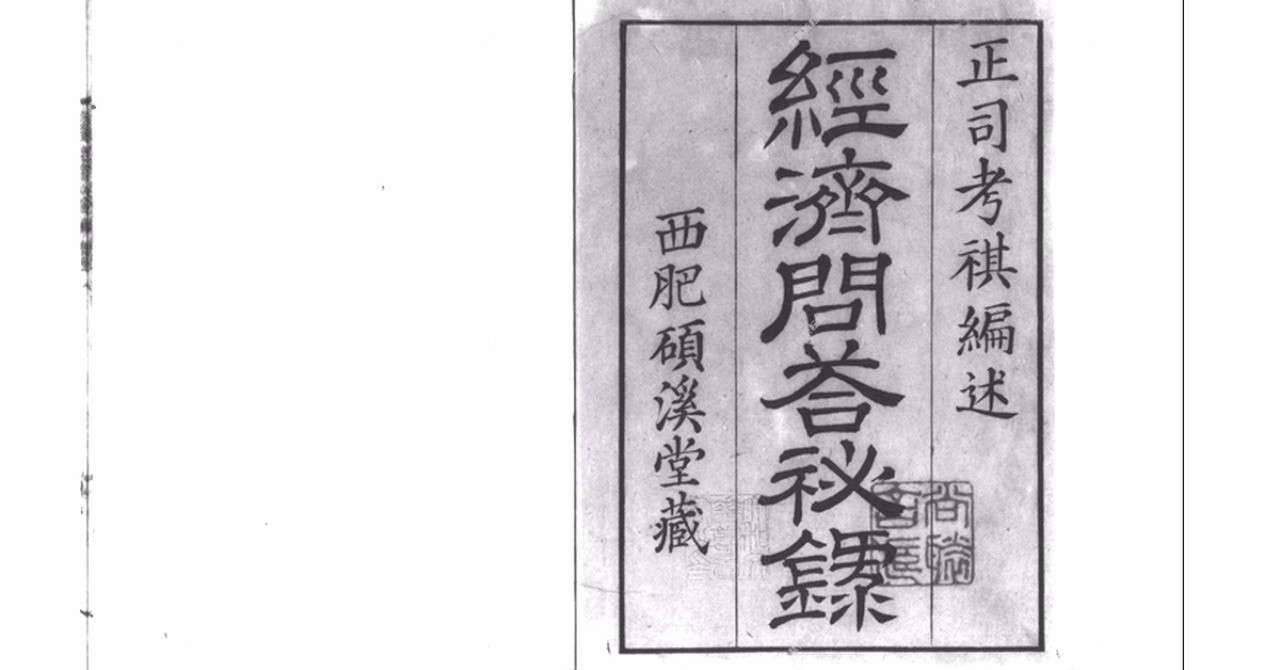 正司考祺編述
經濟問荅祕錄
西肥碩溪堂藏